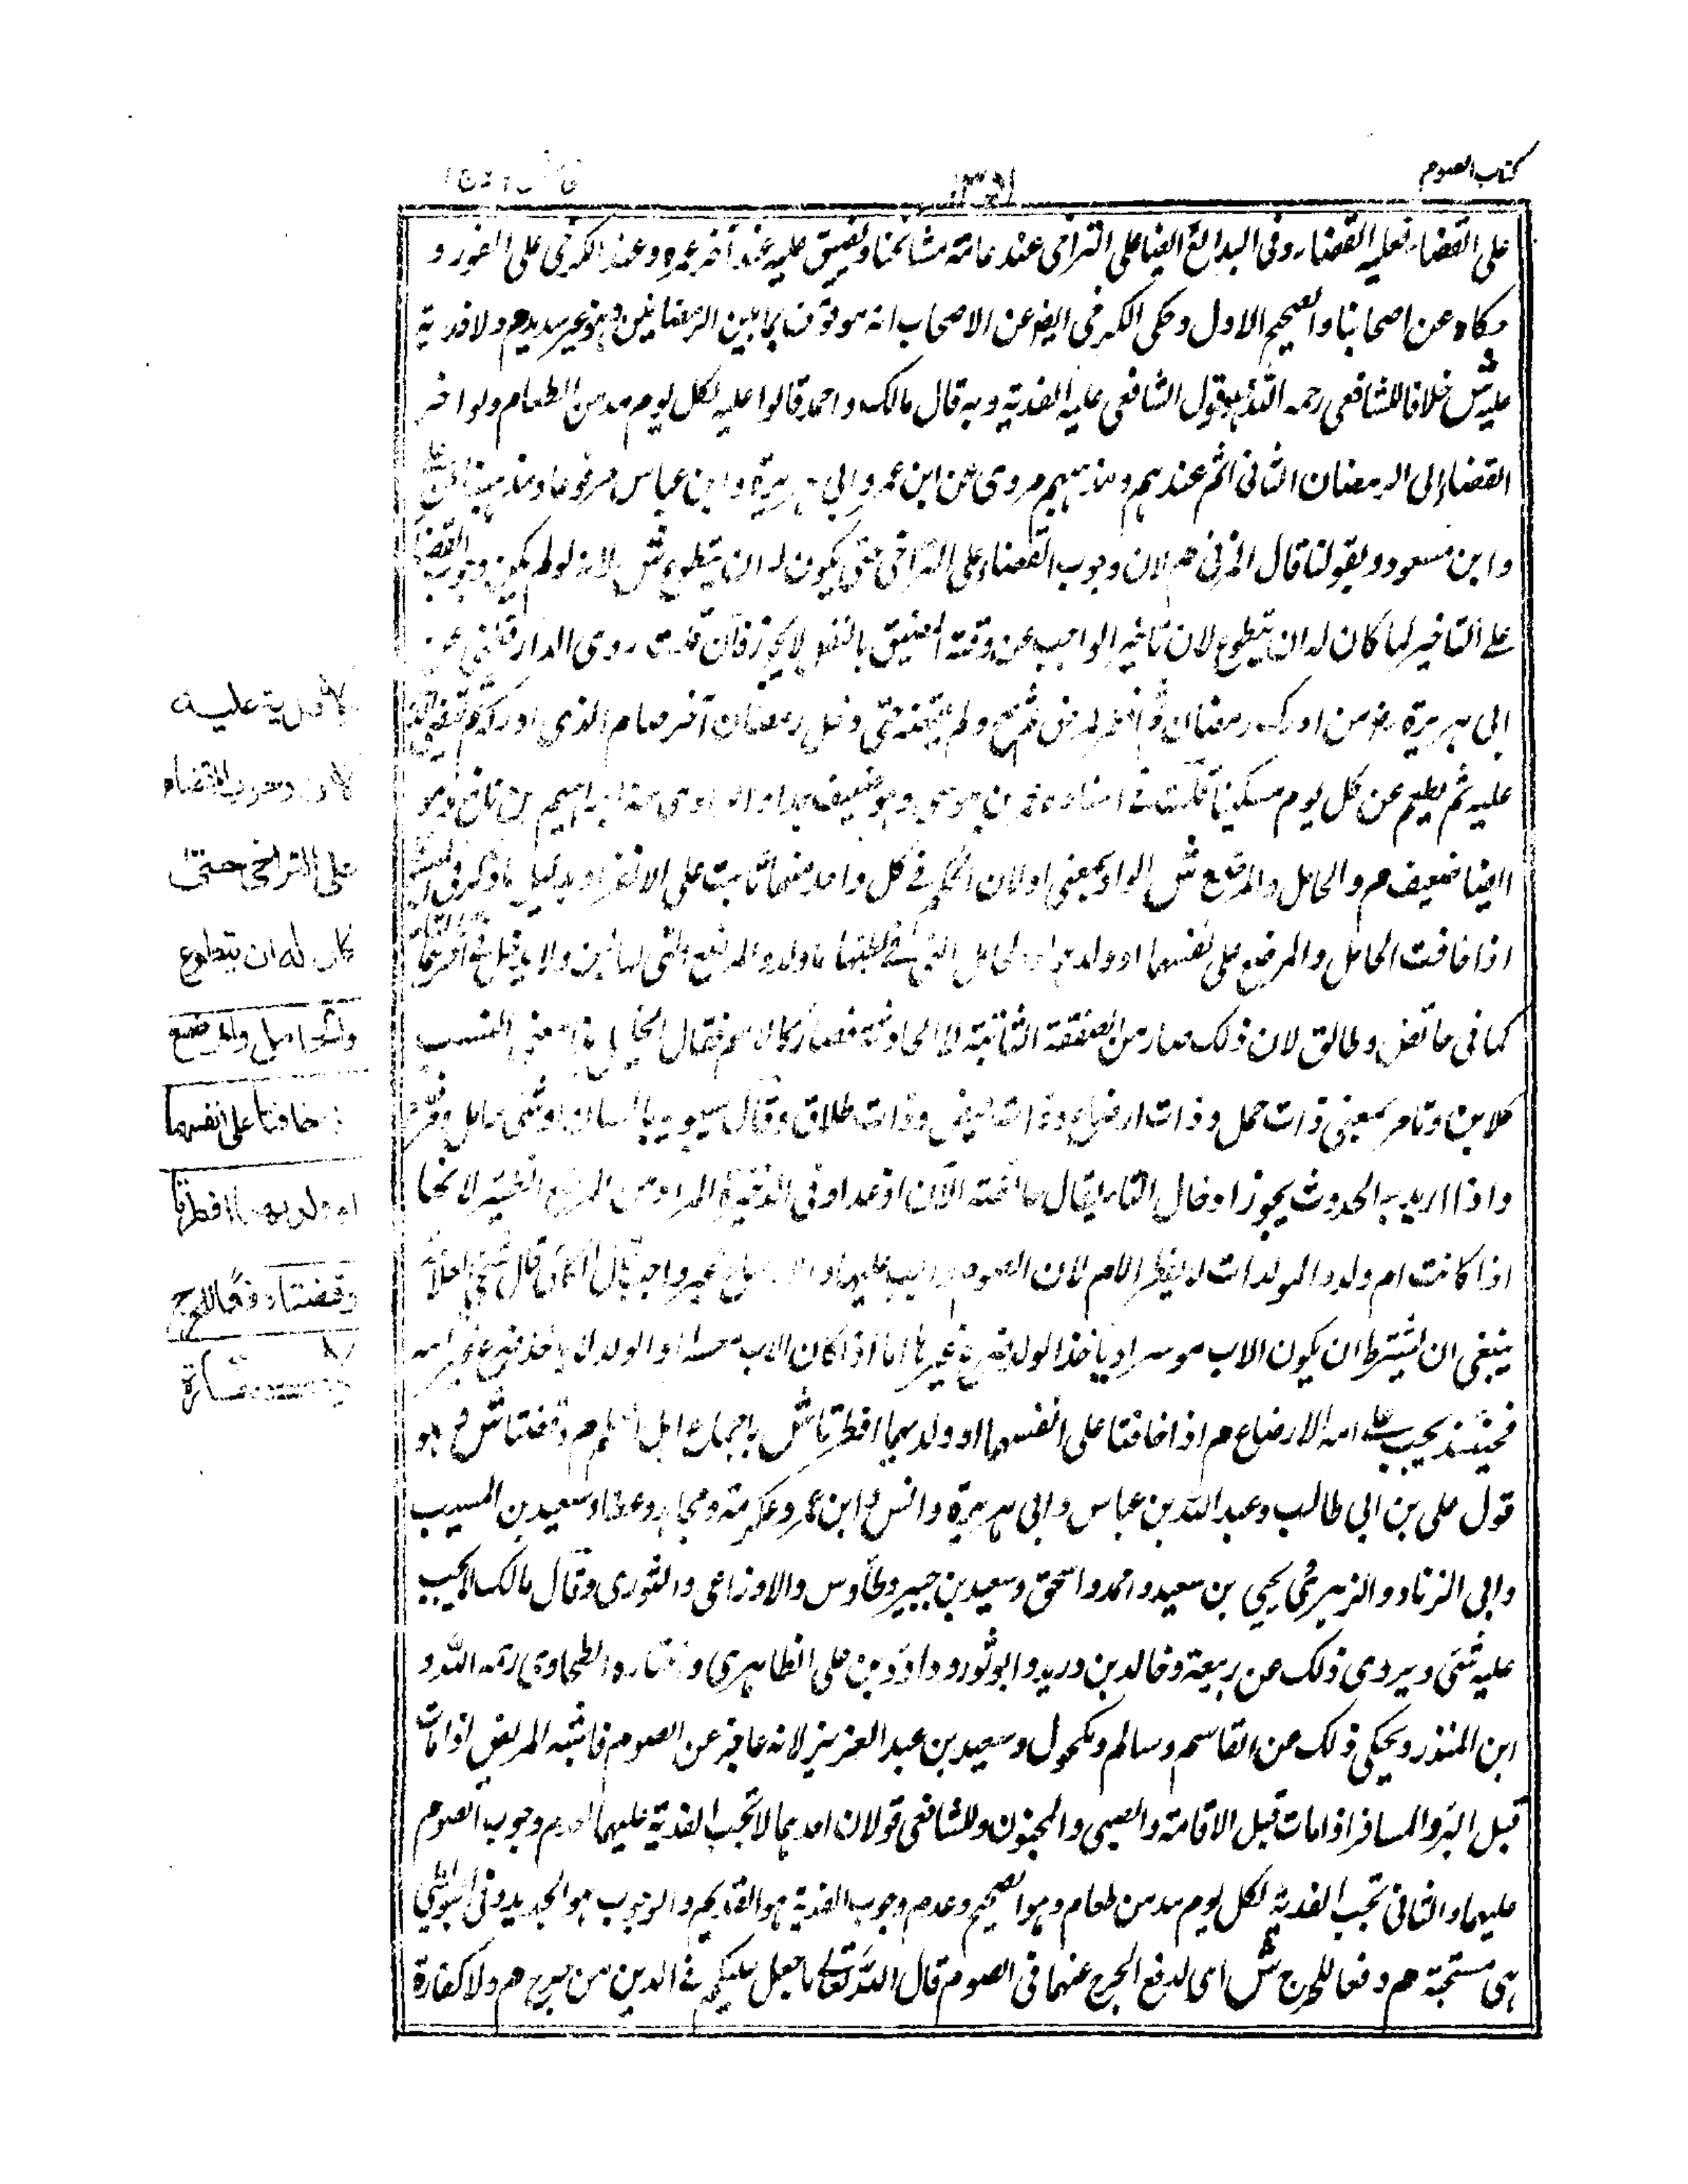 كتاب الصوم
على القضاء فعليه القضاء وفى البدائع ايضا على التراخى عند عامة مشائخنا وتضيق عليه عند آخر عمره وعند الكرخى على الفور و
حكاه عن اصحابنا والصحيح الاول وحكى الكرخى ايضا عن الاصحاب انه موقوت بما بين الرمضانين وهو غير سديد م ولا فدية
عليه ش خلافا للشافعى رحمه الله يقول الشافعى عليه الفدية وبه قال مالك واحمد قالوا عليه لكل يوم مد من الطعام ولو اخر
القضاء الى الرمضان الثانى اثم عندهم ومذهبهم مروى عن ابن عمر وابى هريرة وابن عباس مرفوعا ومذهبنا عن على
وابن مسعود وبقولنا قال المزنى م لان وجوب القضاء على التراخى حتى يكون له ان يتطوع ش لانه لو لم يكن وجوب القضاء
على التاخير لما كان له ان يتطوع لان تاخير الواجب عن وقته المضيق بالنفل لا يجوز فان قلت روى الدارقطنى عن
ابى هريرة رض من ادرك رمضان فافطر لمرض ثم صح ولم يقضه حتى دخل رمضان آخر صام الذى ادركه ثم يقضى
عليه ثم يطعم عن كل يوم مسكينا قلت فى اسناده عمر بن موسى وهو ضعيف جدا والراوى عنه ابراهيم بن نافع وهو
ايضا ضعيف م والحامل والمرضع ش الواو بمعنى او لان الحكم فى كل واحد منهما ثابت على الانفراد بدليل ما ذكر فى
اذا خافت الحامل والمرضع على نفسهما او ولدهما الحامل التى فى بطنها ولد والمرضع التى لها لبن ولا يدخل فى آخرهما
كما فى حائض وطالق لان ذلك صار من الصفة الثابتة لا الحادثة فصار كالاسم فقال الخليل هذا بمعنى النسب
كلابن وتامر بمعنى ذات حمل وذات ارضاع وذات حيض وذات طلاق وقال سيبويه انسان او شئ حامل
واذا اريد به الحدوث يجوز ادخال التاء يقال حائضة الآن او غدا وفى الذخيرة المراد من المرضع الظئر لانها
اذا كانت ام ولود المولدات لا يفطر الام لان الصوم واجب عليها والارضاع غير واجب قال الاكمل قال شيخى العلامة
ينبغى ان يشترط ان يكون الاب موسرا ويأخذ الولد ضرع غيرها اما اذا كان الاب معسرا او الولد لا يأخذ ضرع غير امه
فحينئذ يجب على امه الارضاع م اذا خافتا على انفسهما او ولديهما افطرتا ش باجماع اهل العلم م وقضتا ش وهو
قول على بن ابى طالب وعبد الله بن عباس وابى هريرة وانس وابن عمر وعكرمة ومجاهد وعطاء وسعيد بن المسيب
وابى الزناد والزهرى ويحيى بن سعيد واحمد واسحق وسعيد بن جبير وطاؤس والاوزاعى والثورى وقال مالك لا يجب
عليه شئ ويروى ذلك عن ربيعة وخالد بن دريد وابو ثور وداؤد بن على الظاهرى واختاره الطحاوى رحمه الله و
ابن المنذر ويحكى ذلك عن القاسم وسالم ومكحول وسعيد بن عبد العزيز لانه عاجز عن الصوم فاشبه المريض اذا مات
قبل البرء والمسافر اذا مات قبل الاقامة والصبى والمجنون وللشافعى قولان احدهما لا تجب الفدية عليهما لعدم وجوب الصوم
عليهما والثانى تجب الفدية لكل يوم مد من طعام وهو الصحيح وعدم وجوب الفدية هو القديم والوجوب هو الجديد وفى البويطى
هى مستحبة م دفعا للحرج ش اى لدفع الحرج عنهما فى الصوم قال الله تعالى ما جعل عليكم فى الدين من حرج م ولا كفارة
لا فدية عليه
لان وجوب القضاء
على التراخى حتى
كان له ان يتطوع
والحامل والمرضع
اذا خافتا على انفسهما
او ولديهما افطرتا
وقضتا دفعا للحرج
ولا كفارة